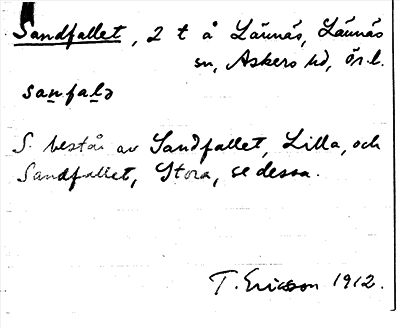 Sandfallet, 2 t å Läunäs, Läunäs
sn, Askers hd, Ör.l.
sanfalə
S. består av Sandfallet, Lilla, och
Sandfallet, Stora, se dessa.
T. Ericsson 1912.